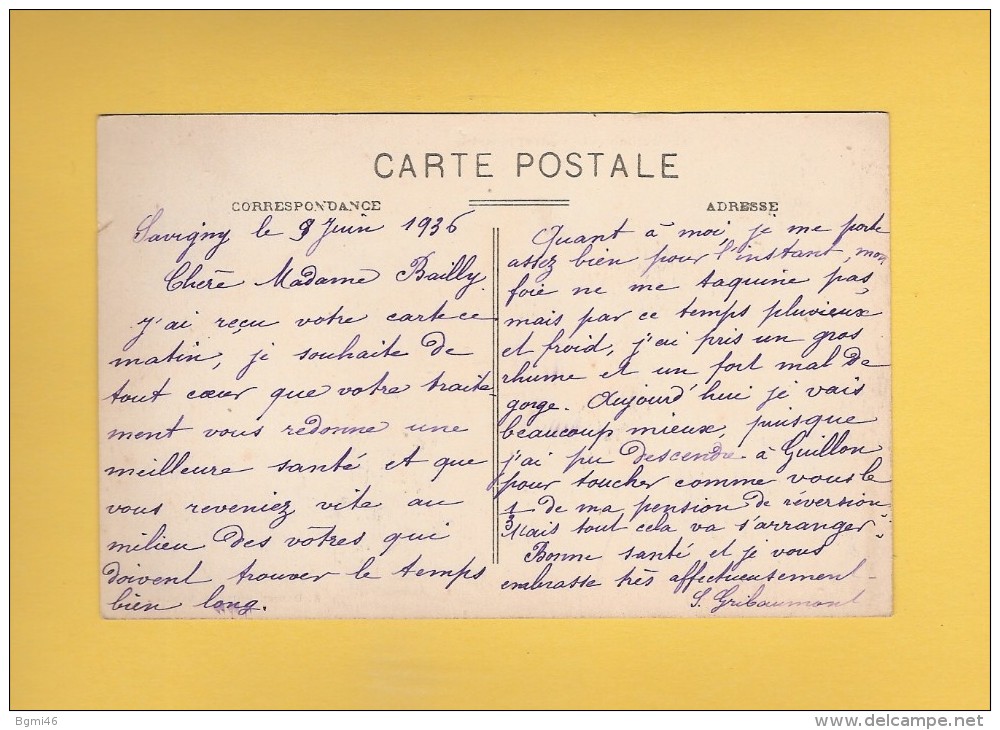 CARTE POSTALE
CORRESPONDANCE
ADRESSE
Savigny le 8 Juin 1936
Chère Madame Bailly
J'ai reçu votre carte ce
matin, je souhaite de
tout cœur que votre traite-
ment vous redonne une
meilleure santé et que
vous reveniez vite au
milieu des vôtres qui
doivent trouver le temps
bien long.
Quant à moi, je me porte
assez bien pour l'instant, mon
foie ne me taquine pas
mais par ce temps pluvieux
et froid, j'ai pris un gros
rhume et un fort mal de
gorge. Aujourd'hui je vais
beaucoup mieux, puisque
j'ai pu descendre à Guillon
pour toucher comme vous le
1/3 de ma pension de réversion
Mais tout cela va s'arranger
Bonne santé et je vous
embrasse très affectueusement
S. Gribaumont
Bgmi46
www.delcampe.net